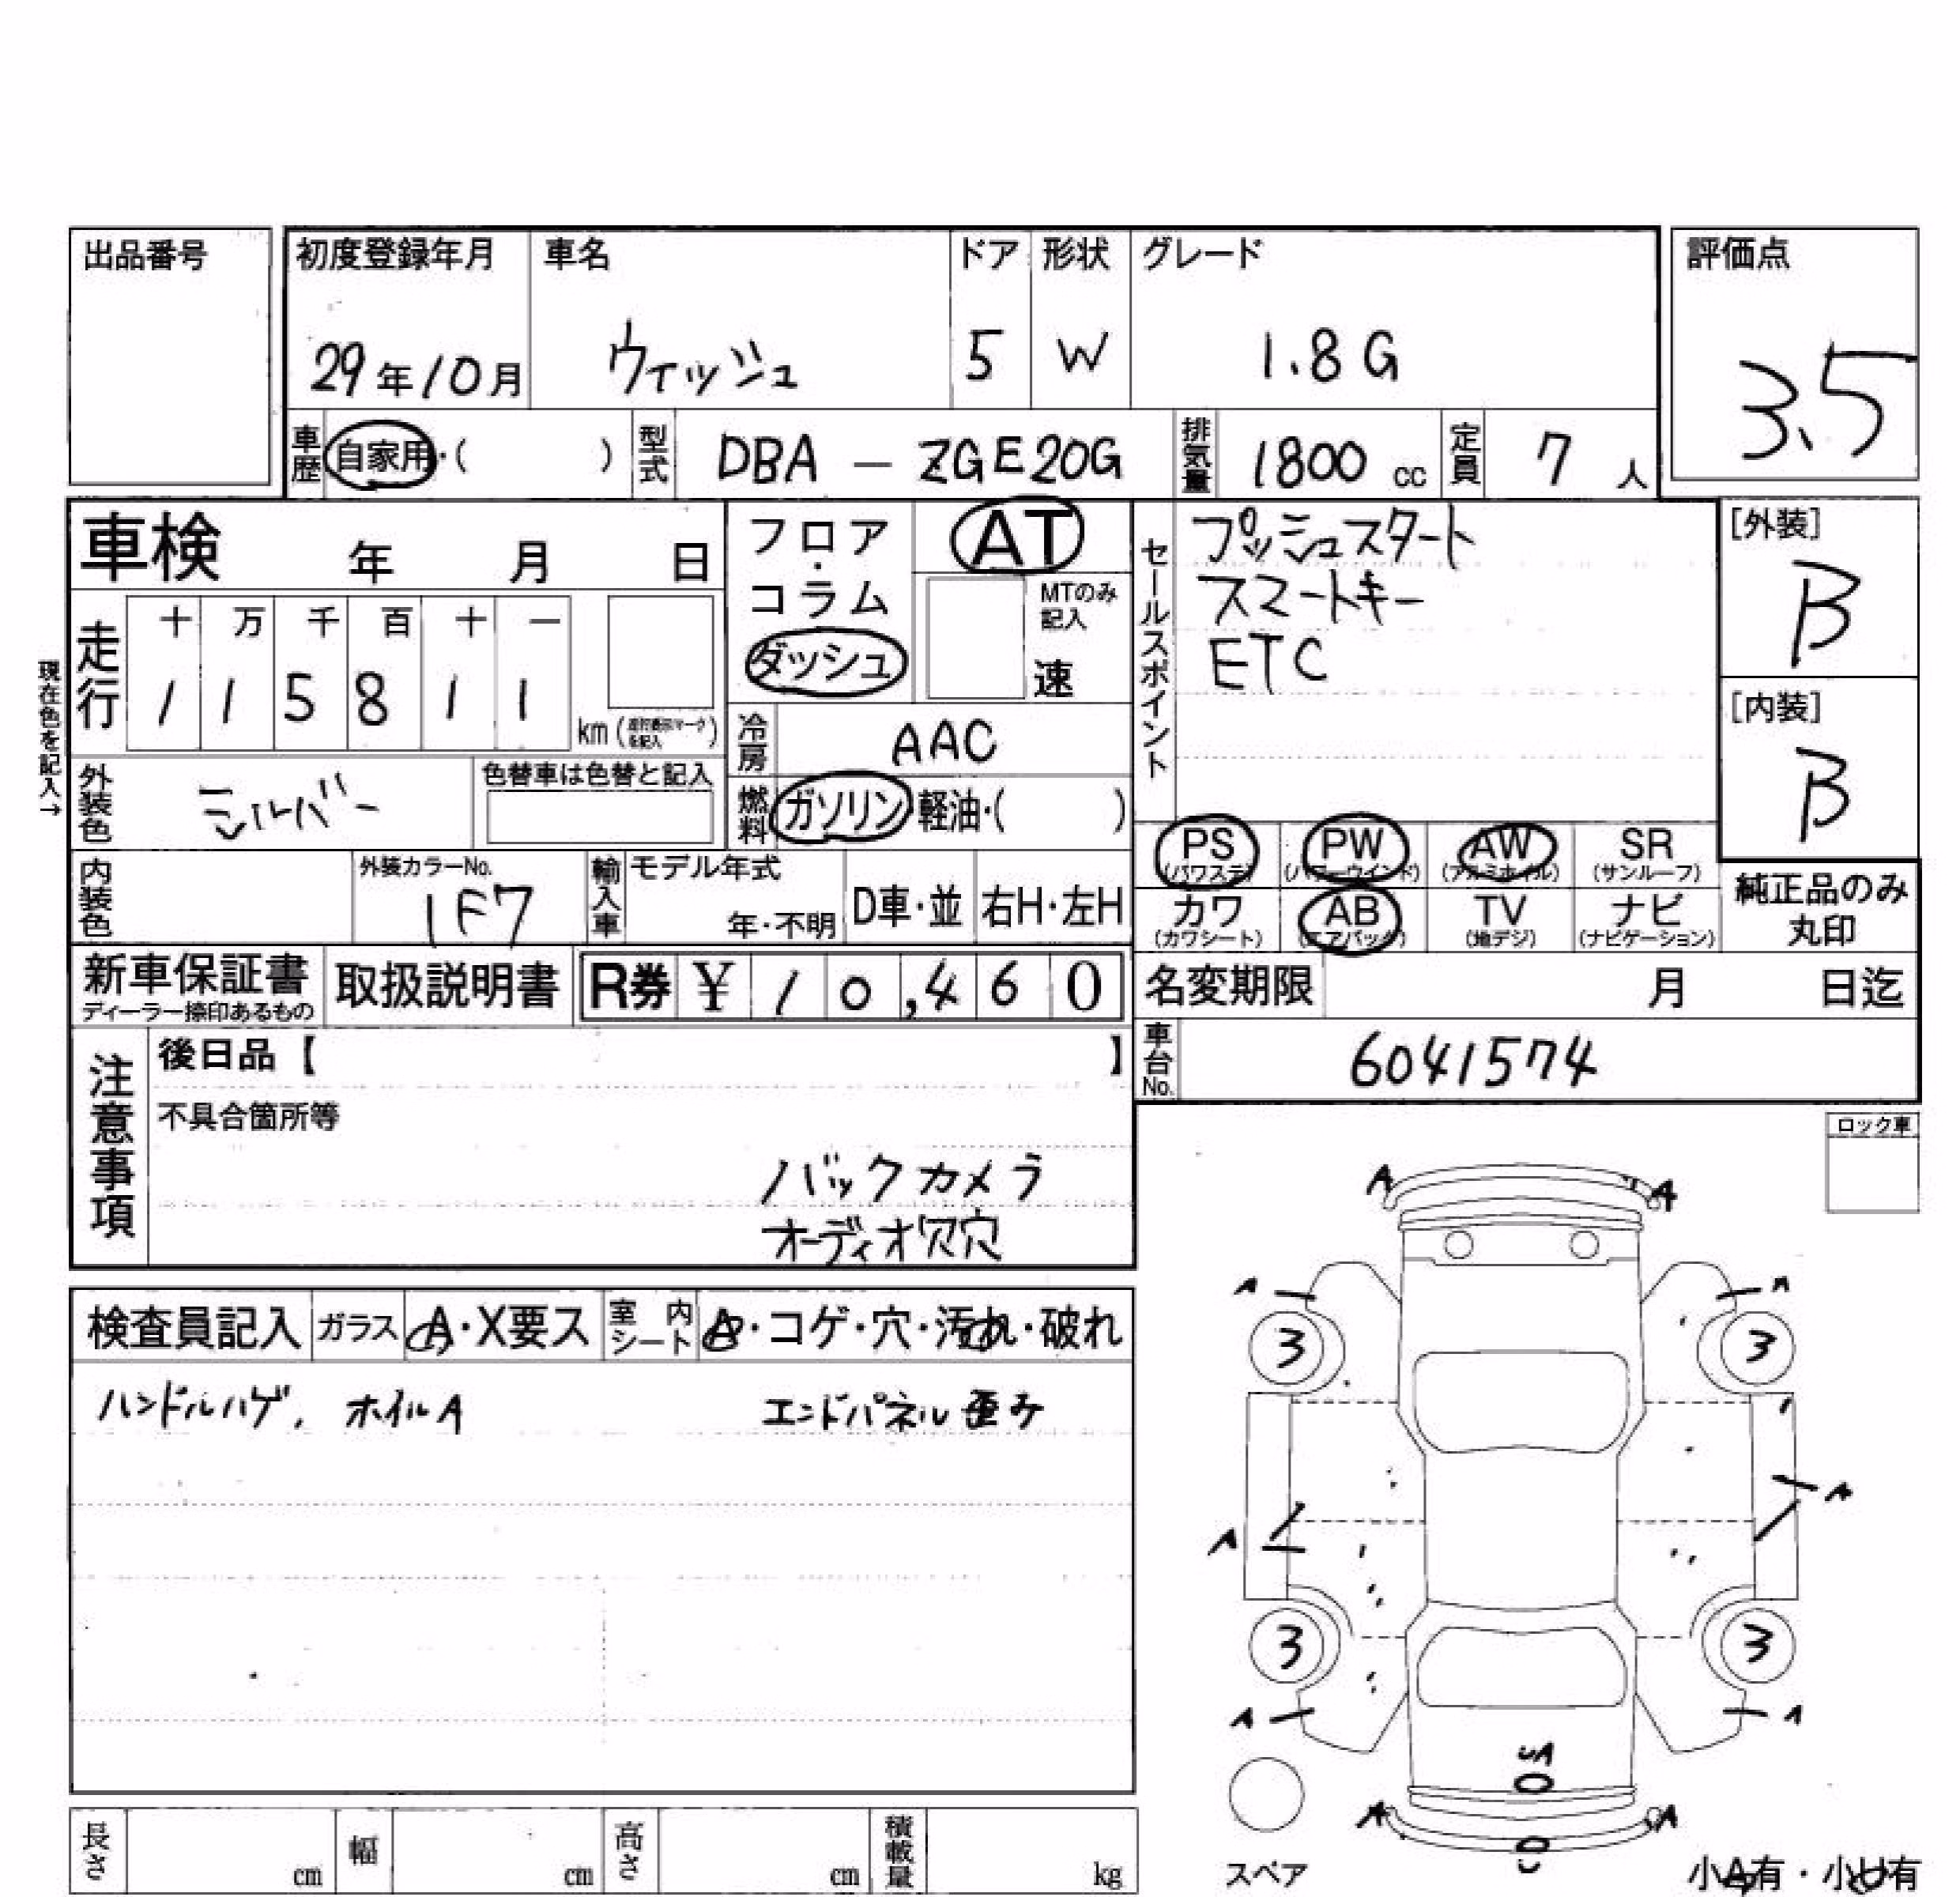 出品番号
初度登録年月 車名 ドア 形状 グレード 評価点
29年10月 ウィッシュ 5 W 1.8G 3.5
車歴 自家用・( ) 型式 DBA - ZGE20G 排気量 1800 cc 定員 7 人
車検 年 月 日
フロア・コラム
ダッシュ
AT
MTのみ記入
速
セールスポイント
プッシュスタート
スマートキー
ETC
[外装]
B
[内装]
B
現在色を記入→
走行 十 万 千 百 十 一
1 1 5 8 1 1 km
冷房 AAC
外装色 シルバー 色替車は色替と記入
燃料 ガソリン・軽油・( )
PS PW AW SR
(パワステ) (パワーウインド) (アルミホイル) (サンルーフ)
カワ AB TV ナビ
(カワシート) (エアバック) (地デジ) (ナビゲーション)
純正品のみ
丸印
内装色 外装カラーNo. 1F7 輸入車 モデル年式 年・不明 D車・並 右H・左H
新車保証書 取扱説明書 R券 ¥ 10,460
ディーラー捺印あるもの
名変期限 月 日迄
車台No. 6041574
注意事項
後日品【 】
不具合箇所等
バックカメラ
オーディオ穴穴
ロック車
検査員記入 ガラス A・X要ス 室内シート A・コゲ・穴・汚れ・破れ
ハンドルハゲ, ホイルA エンドパネル歪み
A A
A A
3 3
A
A
3 3
A A
UA
A A
U
スペア
小A有・小U有
長さ cm 幅 cm 高さ cm 積載量 kg